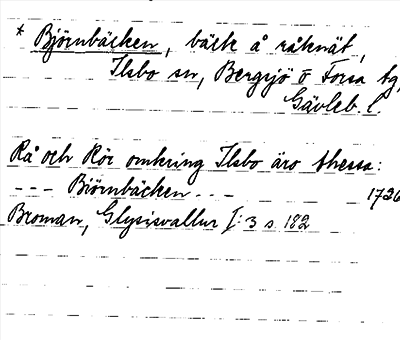 * Björnbäcken, bäck å råknät,
Ilsbo sn, Bergsjö o Forsa tg,
Gävleb. l.
Rå och Rör omkring Ilsbo äro thessa:
--- Björnbäcken --- 1726
Broman, Glysisvallur I:3 s 182